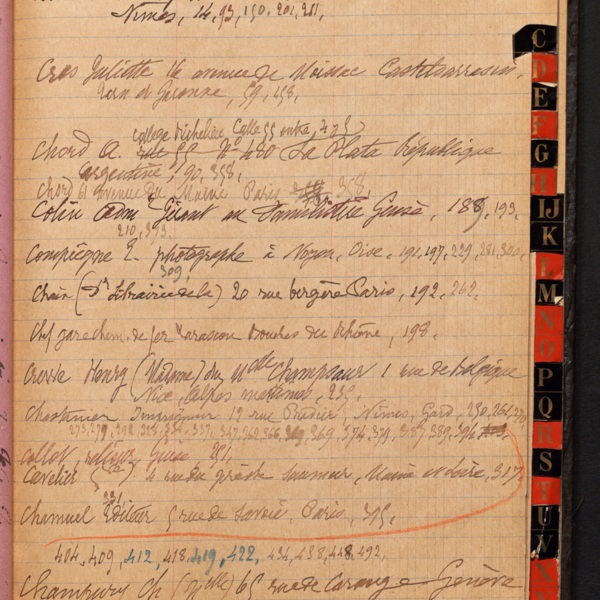 Nîmes, 14, 93, 150, 201, 251,
Cros Juliette 16 avenue de Moissac Castelsarrasin,
Tarn et Garonne, 59, 158.
collège Richelieu Calle 55 entre
Chord A. rue 55 N° 480 La Plata République
Argentine, 90, 358,
Chord 61 avenue du Maine Paris 358,
Colin Adm Gérant au Familistère Guise, 189, 193,
210, 393,
Compiègne E. photographe à Noyon, Oise, 191, 197, 229, 281, 300,
309,
Chaix (Dr Librairie de la) 20 rue bergère Paris, 192, 262,
Chef gare chem. de fer Tarascon Bouches du Rhône, 198,
Crosse Henry (Madame) du Champsaur 1 rue de Belgique
Nice, Alpes maritimes, 235,
Chastanier Imprimeur 12 rue Pradier, Nîmes, Gard, 250, 264, 270
Collot relieur Guise 251,
Cavelier 4 rue du Saumur, Maine et Loire, 317,
291,
Chamuel Éditeur 5 rue de Savoie, Paris, 315,
404, 409, 412, 418, 419, 422, 434, 438, 448, 492,
Champury Ch 65 rue de Carouge Genève
C
D
E
F
G
H
IJ
K
L
M
N
O
P
Q
R
S
T
U
V